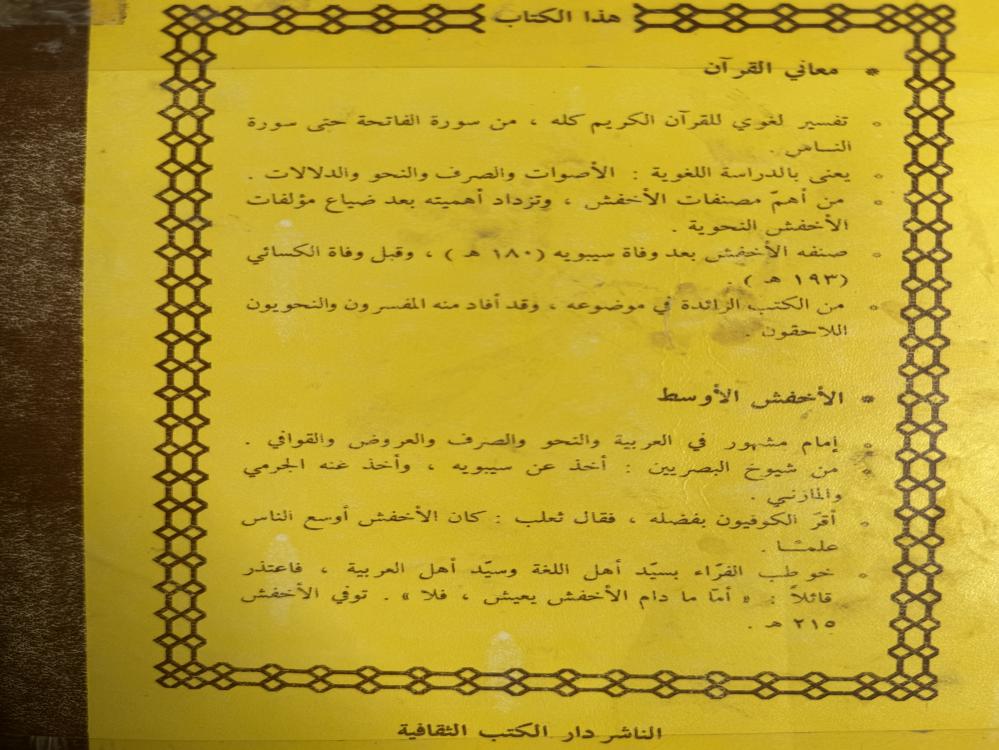 هذا الكتاب
* معاني القرآن
° تفسير لغوي للقرآن الكريم كله ، من سورة الفاتحة حتى سورة
الناس .
° يعنى بالدراسة اللغوية : الأصوات والصرف والنحو والدلالات .
° من أهمّ مصنفات الأخفش ، وتزداد أهميته بعد ضياع مؤلفات
الأخفش النحوية .
° صنفه الأخفش بعد وفاة سيبويه (١٨٠ هـ ) ، وقبل وفاة الكسائي
(١٩٣ هـ ) .
° من الكتب الرائدة في موضوعه ، وقد أفاد منه المفسرون والنحويون
اللاحقون .
* الأخفش الأوسط
° إمام مشهور في العربية والنحو والصرف والعروض والقوافي .
° من شيوخ البصريين : أخذ عن سيبويه ، وأخذ عنه الجرمي
والمازني .
° أقرّ الكوفيون بفضله ، فقال ثعلب : كان الأخفش أوسع الناس
علمـــا .
° خوطب الفرّاء بسيّد أهل اللغة وسيّد أهل العربية ، فاعتذر
قائلاً : « أمّا ما دام الأخفش يعيش ، فلا » . توفي الأخفش
٢١٥ هـ .
الناشر دار الكتب الثقافية